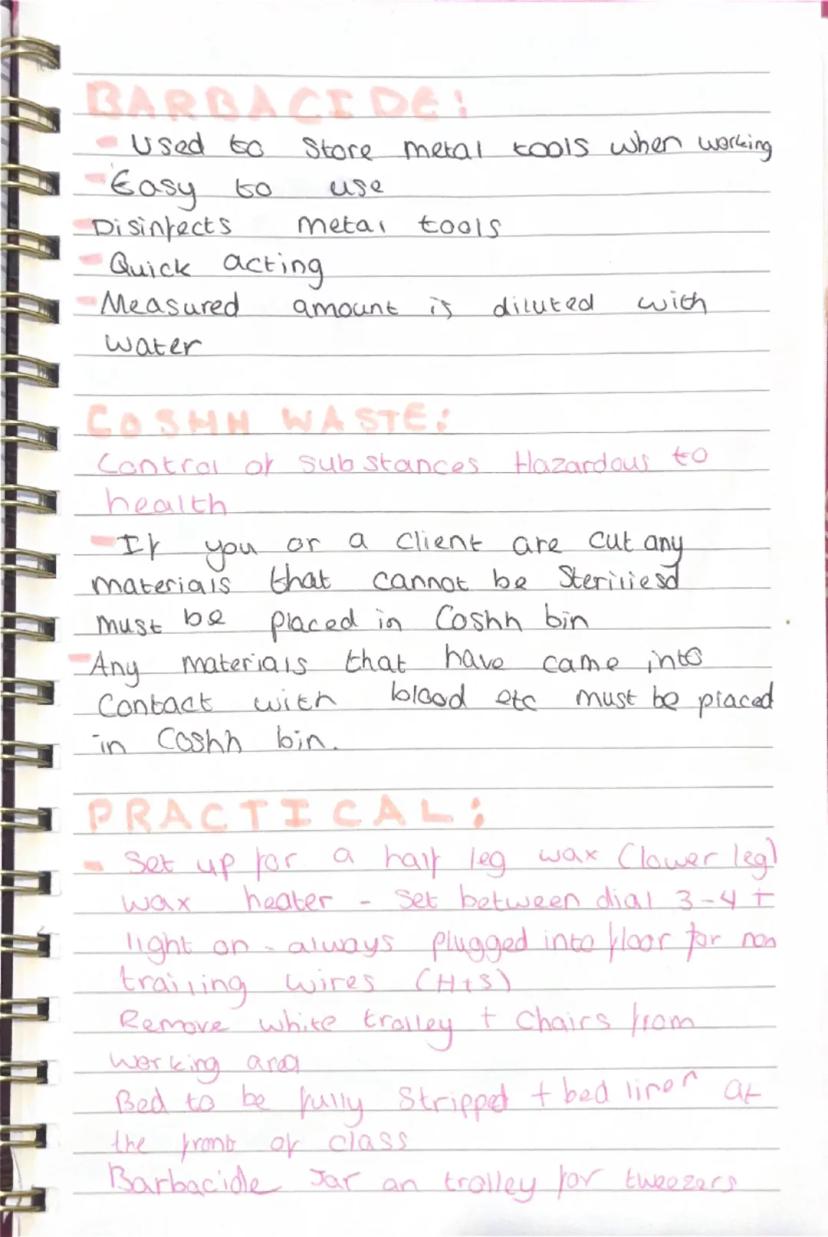 BARBACIDE:
- Used to store metal tools when working
- Easy to use
- Disinfects metal tools
- Quick acting
- Measured amount is diluted with
water
COSHH WASTE:
Control of substances Hazardous to
health
- If you or a client are cut any
materials that cannot be Steriliesd
must be placed in Coshh bin
- Any materials that have came into
Contact with blood etc must be placed
in Coshh bin.
PRACTICAL:
- Set up for a half leg wax (lower leg)
wax heater - Set between dial 3-4 +
light on - always plugged into floor for non
trailing wires (H+S)
Remove white trolley + Chairs from
working area
Bed to be fully Stripped + bed liner at
the front of class
Barbacide Jar on trolley for tweezers